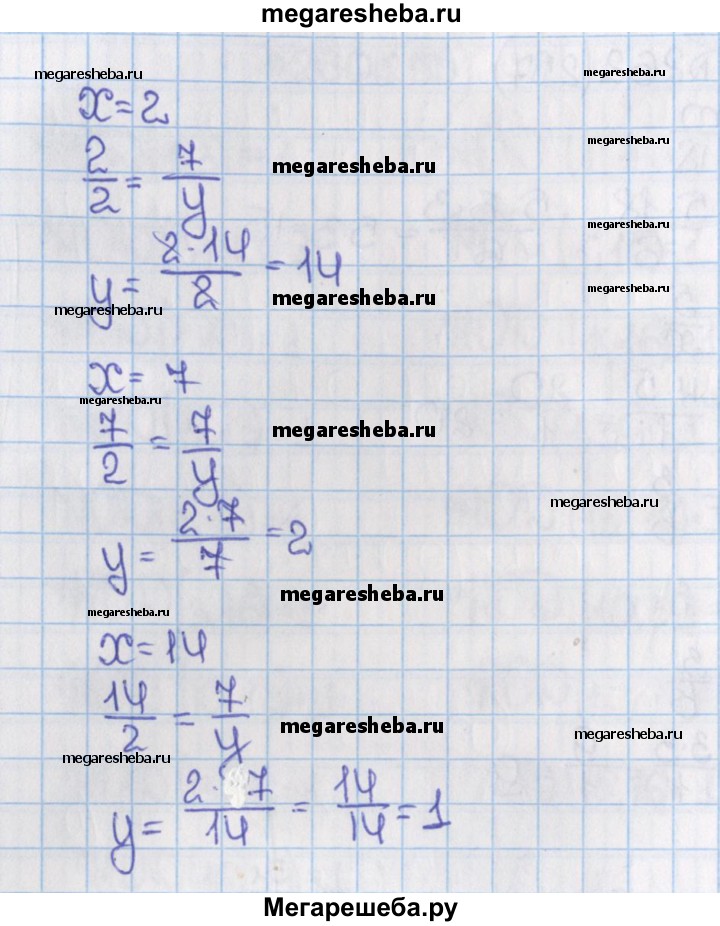 megaresheba.ru
megaresheba.ru megaresheba.ru
x = 2
megaresheba.ru
2/2 = 7/y megaresheba.ru
megaresheba.ru
y = 2·14/2 = 14 megaresheba.ru megaresheba.ru
megaresheba.ru
x = 7
megaresheba.ru
7/2 = 7/y megaresheba.ru
megaresheba.ru
y = 2·7/7 = 2
megaresheba.ru
megaresheba.ru
x = 14
14/2 = 7/y megaresheba.ru megaresheba.ru
megaresheba.ru
y = 2·7/14 = 14/14 = 1
Мегарешеба.ру